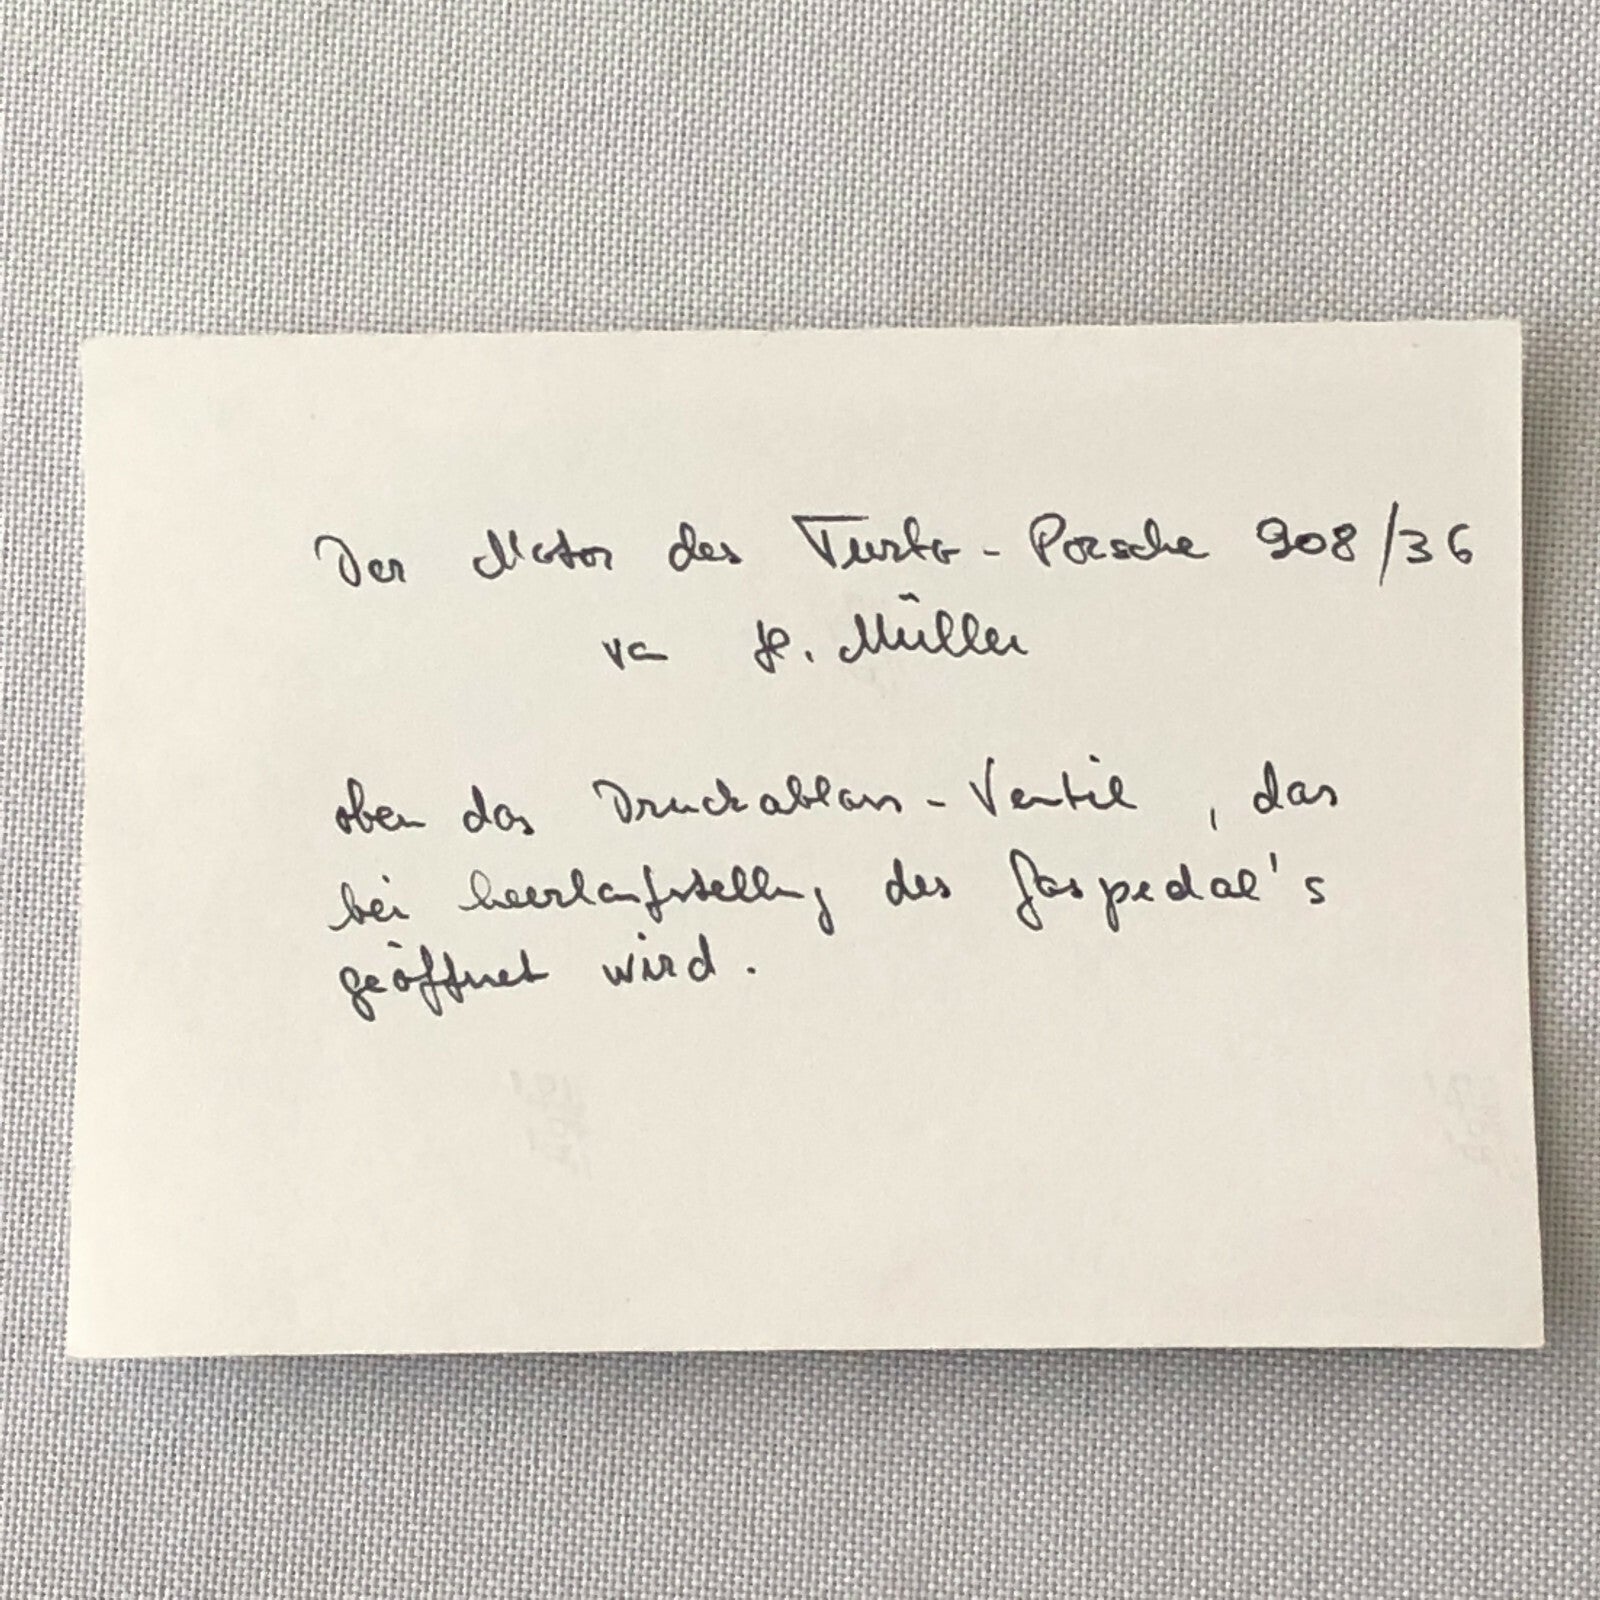 Der Motor des Turbo - Porsche 908/36
von H. Müller
oben das Druckablass - Ventil, das
bei Leerlaufstellung des Gaspedal's
geöffnet wird.